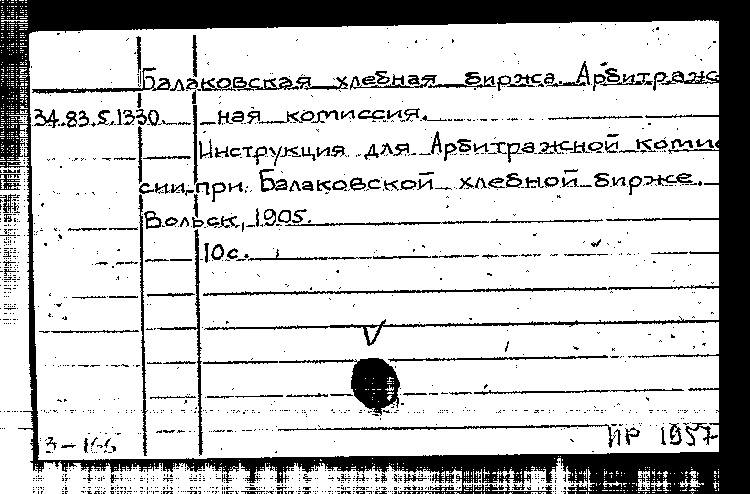 Балаковская хлебная биржа. Арбитраж
34.83.5.1330. ная комиссия.
Инструкция для Арбитражной комис
сии при Балаковской хлебной бирже.
Вольск, 1905.
10с.
V
3-166 ИР 1957